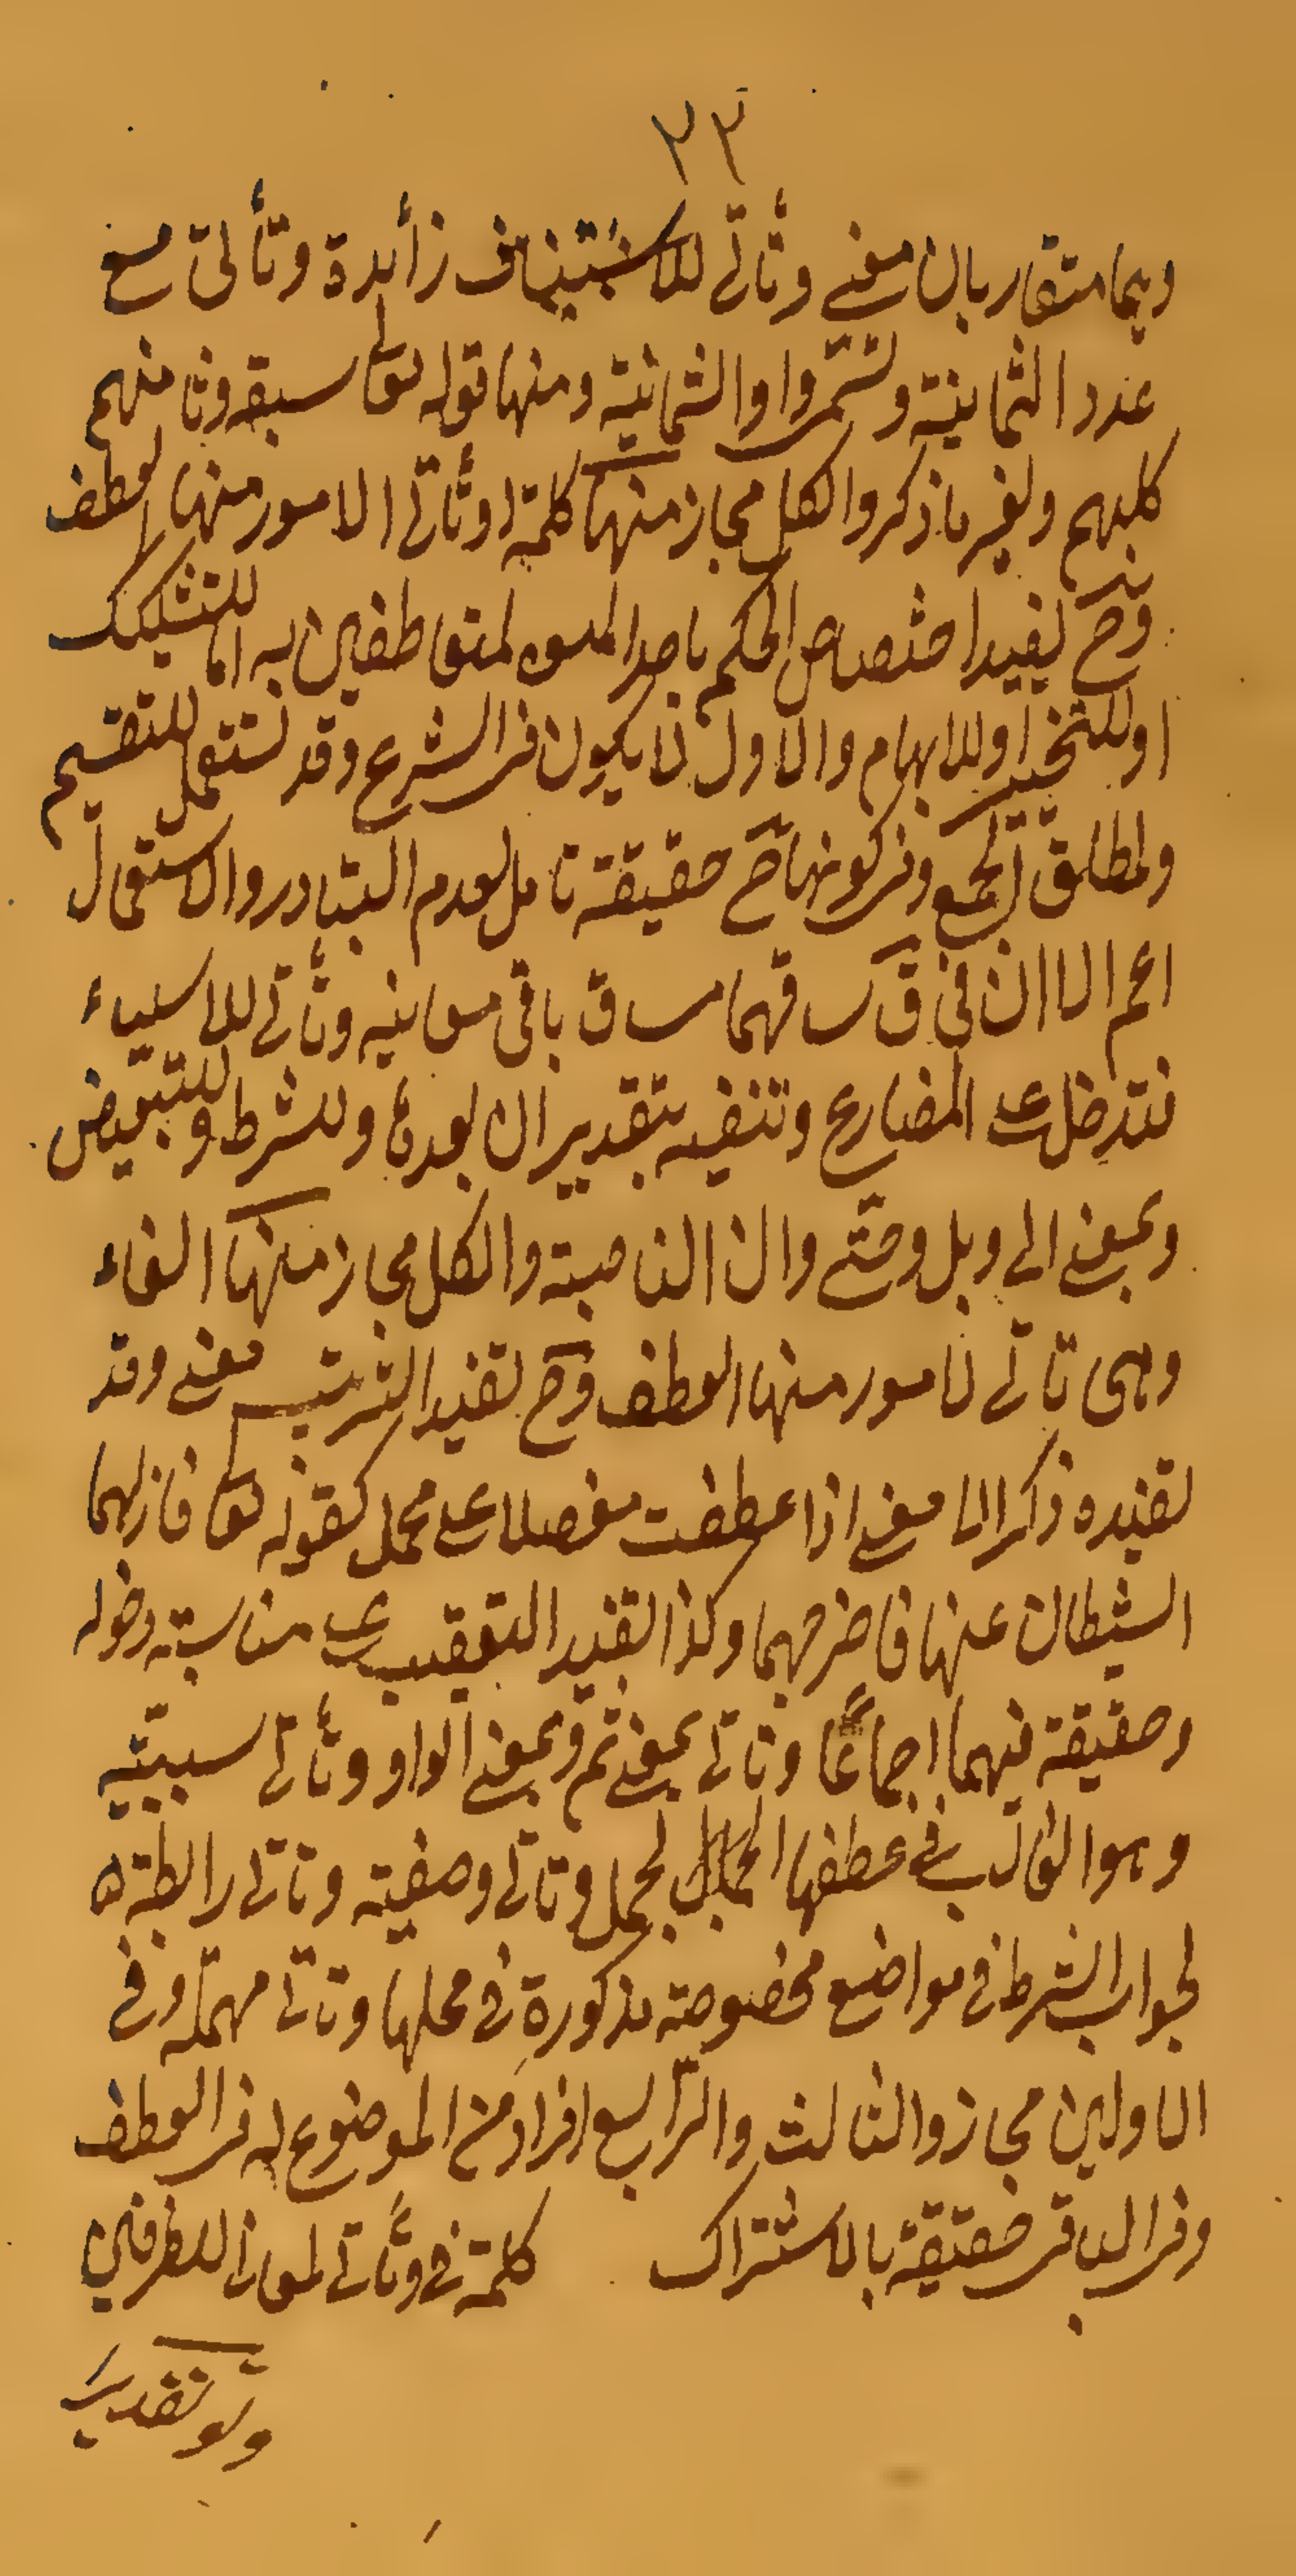 ٢٣
وهما متقاربان معنى وتأتي للاستيناف زائدة وتأتي مع
عدد الثمانية وتسمى واو الثمانية ومنها قوله تعالى سبعة وثامنهم
كلبهم ولغير ما ذكروا الكل مجاز منها كلمة او وتأتي الامور منها العطف
وح يفيد اختصاص الحكم باحد المتعاطفين به اما للتشكيك
او للتخيير او للابهام والاول لا يكون في الشرع وقد تستعمل للتقسيم
ولمطلق الجمع وفي كونها ح حقيقة تامل لعدم التبادر والاستعمال
اعم الا ان في ق ساقهما مساق باقي معانيه وتأتي للاستثناء
فتدخل على المضارع وتنفيه بتقدير ان بعدها وللشرط وللتبعيض
وبمعنى الى وبل وحتى وان الناصبة والكل مجاز منها الفاء
وهي تأتي لامور منها العطف وح تفيد الترتيب معنى وقد
تفيده ذكرا لا معنى اذا عطفت مفصلا على مجمل كقوله تعالى فازلهما
الشيطان عنها فاخرجهما وكذا تفيد التعقيب على مناسبة دخوله
وحقيقة فيهما اجماعًا وتاتي بمعنى ثم وبمعنى الواو وتأتي سببية
وهو الغالب في عطفها الجمل لجمل وتاتي وصفية وتاتي رابطة
لجواب الشرط في مواضع مخصوصة مذكورة في محلها وتاتي مهملة وفي
الاولين مجاز والثالث والرابع افراد من الموضوع له في العطف
وفي الباقي حقيقة بالاشتراك كلمة في وتأتي لمعان للظرفية
ولو تقديرا